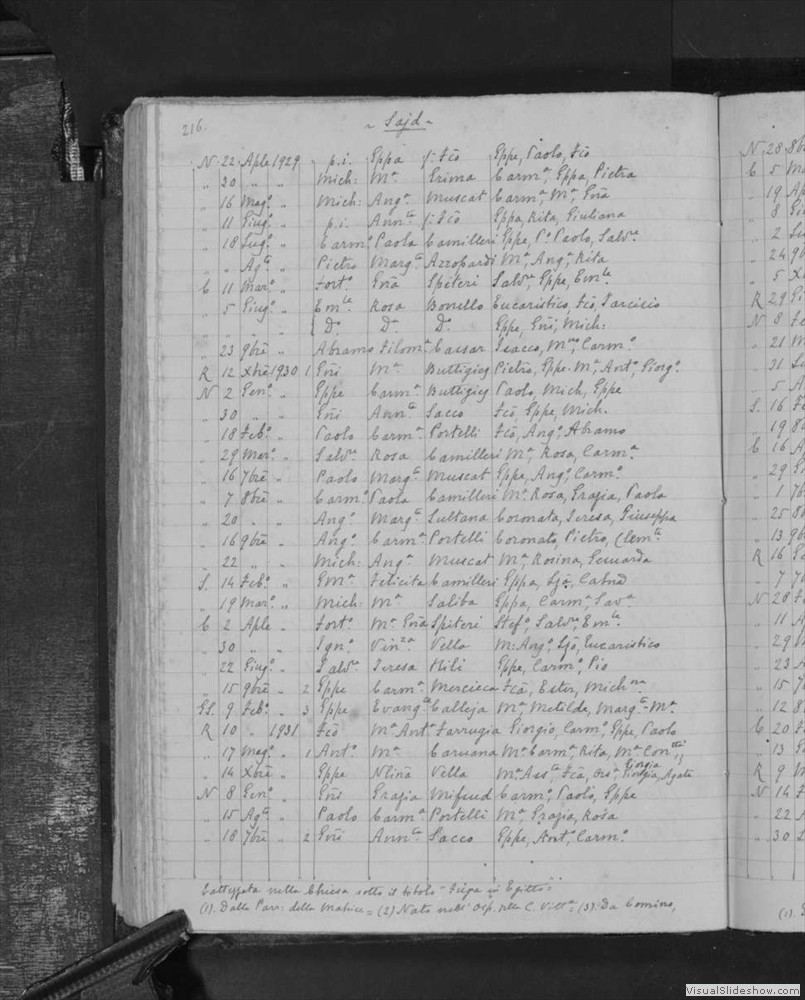 216.
- Sajd -
N. 22 Aple 1929 p.i. Eppa f: Fcõ Eppe, Paolo, Fcõ
„ 30 „ „ Mich: Mª Grima Carmª, Eppa, Pietra
„ 16 Magº „ Mich: Angª Muscat Carmª, Mª, Gnã
„ 11 Giugº „ p.i. Annta f: Fcõ Eppa, Rita, Giuliana
„ 18 Lugº „ Carmº Paola Camilleri Eppe, Pº Paolo, Salvre
„ „ Agto „ Pietro Margta Azzopardi Mª, Angª, Rita
C 11 Marº „ Fortº Gnã Spiteri Salvre, Eppe, Emle
„ 5 Giugº „ Emle Rosa Bonello Eucaristico, Fcõ, Tarcisio
„ „ „ „ { Dº Dº Dº Eppe, Gñi, Mich:
„ 23 9bre „ Abramo Filomª Caesar Isacco, Mno, Carmº
R 12 Xbre 1930 1 Gñi Mª Buttigieg Pietro, Eppe. Mª, Antº, Giorgº
N 2 Genº „ Eppe Carmª Buttigieg Paolo, Mich, Eppe
„ 30 „ „ Gñi Annta Sacco Fcõ, Eppe, Mich.
„ 18 Febº „ Paolo Carmª Portelli Fcõ, Angº, Abramo
„ 29 Marº „ Salvre Rosa Camilleri Mª, Rosa, Carmª
„ 16 7bre „ Paolo Margta Muscat Eppe, Angº, Carmº
„ 7 8bre „ Carmº Paola Camilleri Mª, Rosa, Grazia, Paola
„ 20 „ „ Angº Margta Sultana Coronata, Teresa, Giuseppa
„ 16 9bre „ Angº Carmª Portelli Coronato, Pietro, Clemte
„ 22 „ „ Mich: Angª Muscat Mª, Rosina, Eduarda
S. 14 Febº „ Emª Felicita Camilleri Eppa,
„ 19 Marº „ Mich: Mª Saliba Eppa, Carmª, Savª
C 2 Aple „ Fortº Mª Gnã Spiteri Stefº, Salvre, Emle
„ 30 „ „ Ignº Vinzª Vella M: Angº, Eucaristico
„ 22 Giugº „ Salvre Teresa Hili Eppe, Carmº, Pio
„ 15 9bre „ 2 Eppe Carmª Mercieca Fcã, Ester, Michna
GS. 9 Febº „ 3 Eppe Evangta Calleja Mª, Metilde, Margta Mª
R 10 „ 1931 Fcõ Mª Antª Farrugia Giorgio, Carmº, Eppe, Paolo
„ 17 Magº „ 1 Antº Mª Caruana Mª Carmª, Rita, Mª
„ 14 Xbre „ Eppe Nlinã Vella Mª Assta, Fcã, Giorgia, Agata
N 8 Genº „ Gñi Grazia Mifsud Carmº, Paolo, Eppe
„ 15 Agto „ Paolo Carmª Portelli Mª, Grazia, Rosa
„ 18 7bre „ 2 Gñi Annta Sacco Eppe, Ant, Carmº
Battezzata nella Chiesa sotto il titolo "Fuga in Egitto"
(1). Dalla Parr: della Matrice = (2) Nato nell' Osp. (3). Da Comino,
N 28 8b
C 5 M
„ 19 Ap
„ 2 Lu
„ 24 9b
„ 5 X
R 29
N 8 Fe
„ 21 M
„ 31
„ 5 A
S. 16 F
„ 19 8
C 16 A
„ 29
„ 1 7b
„ 25 8
„ 13 9b
R 16
„ 7
N 28 F
„ 11 A
„ 29
„ 23
„ 15
„ 12 8
C 20 F
„ 13
R 9 M
N 14 F
„ 22 A
„ 30
(1).
VisualSlideshow.com